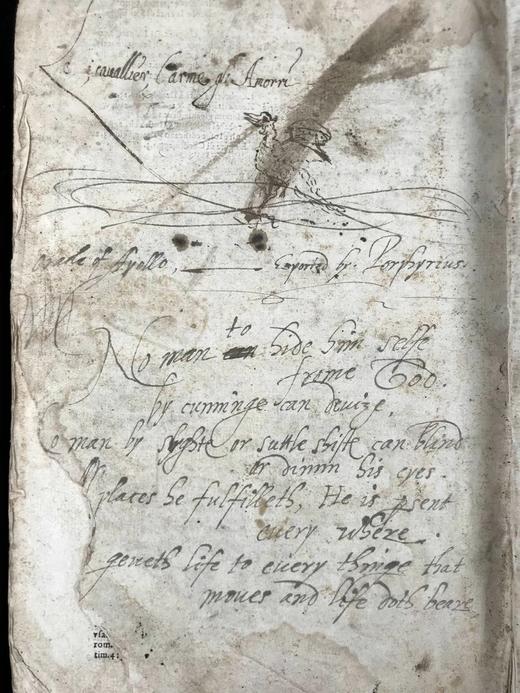 cavallier, l'arme gl' Amorri
of Apollo, Reported by Porphyrius.
to
No man can hide him selfe
frome God.
by cunninge can deuize,
o man by slyghte or suttle shifte can blind
or dimm his eyes.
places he fulfilleth, He is psent
euery where.
geueth life to euery thinge that
moues and life doth beare
vſa.
rom.
tim.4: